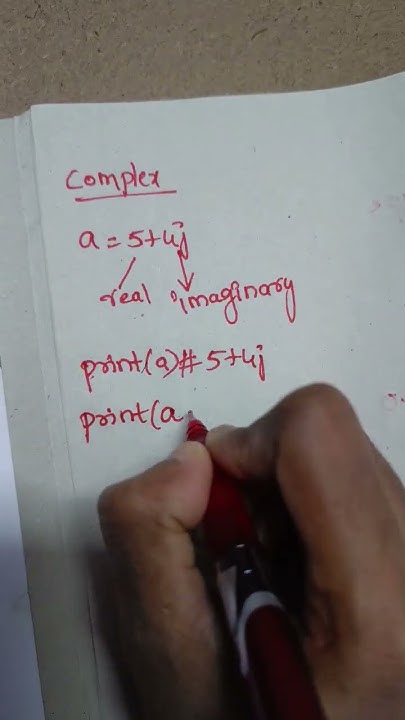 Complex
a = 5+4j
real imaginary
print(a)# 5+4j
print(a